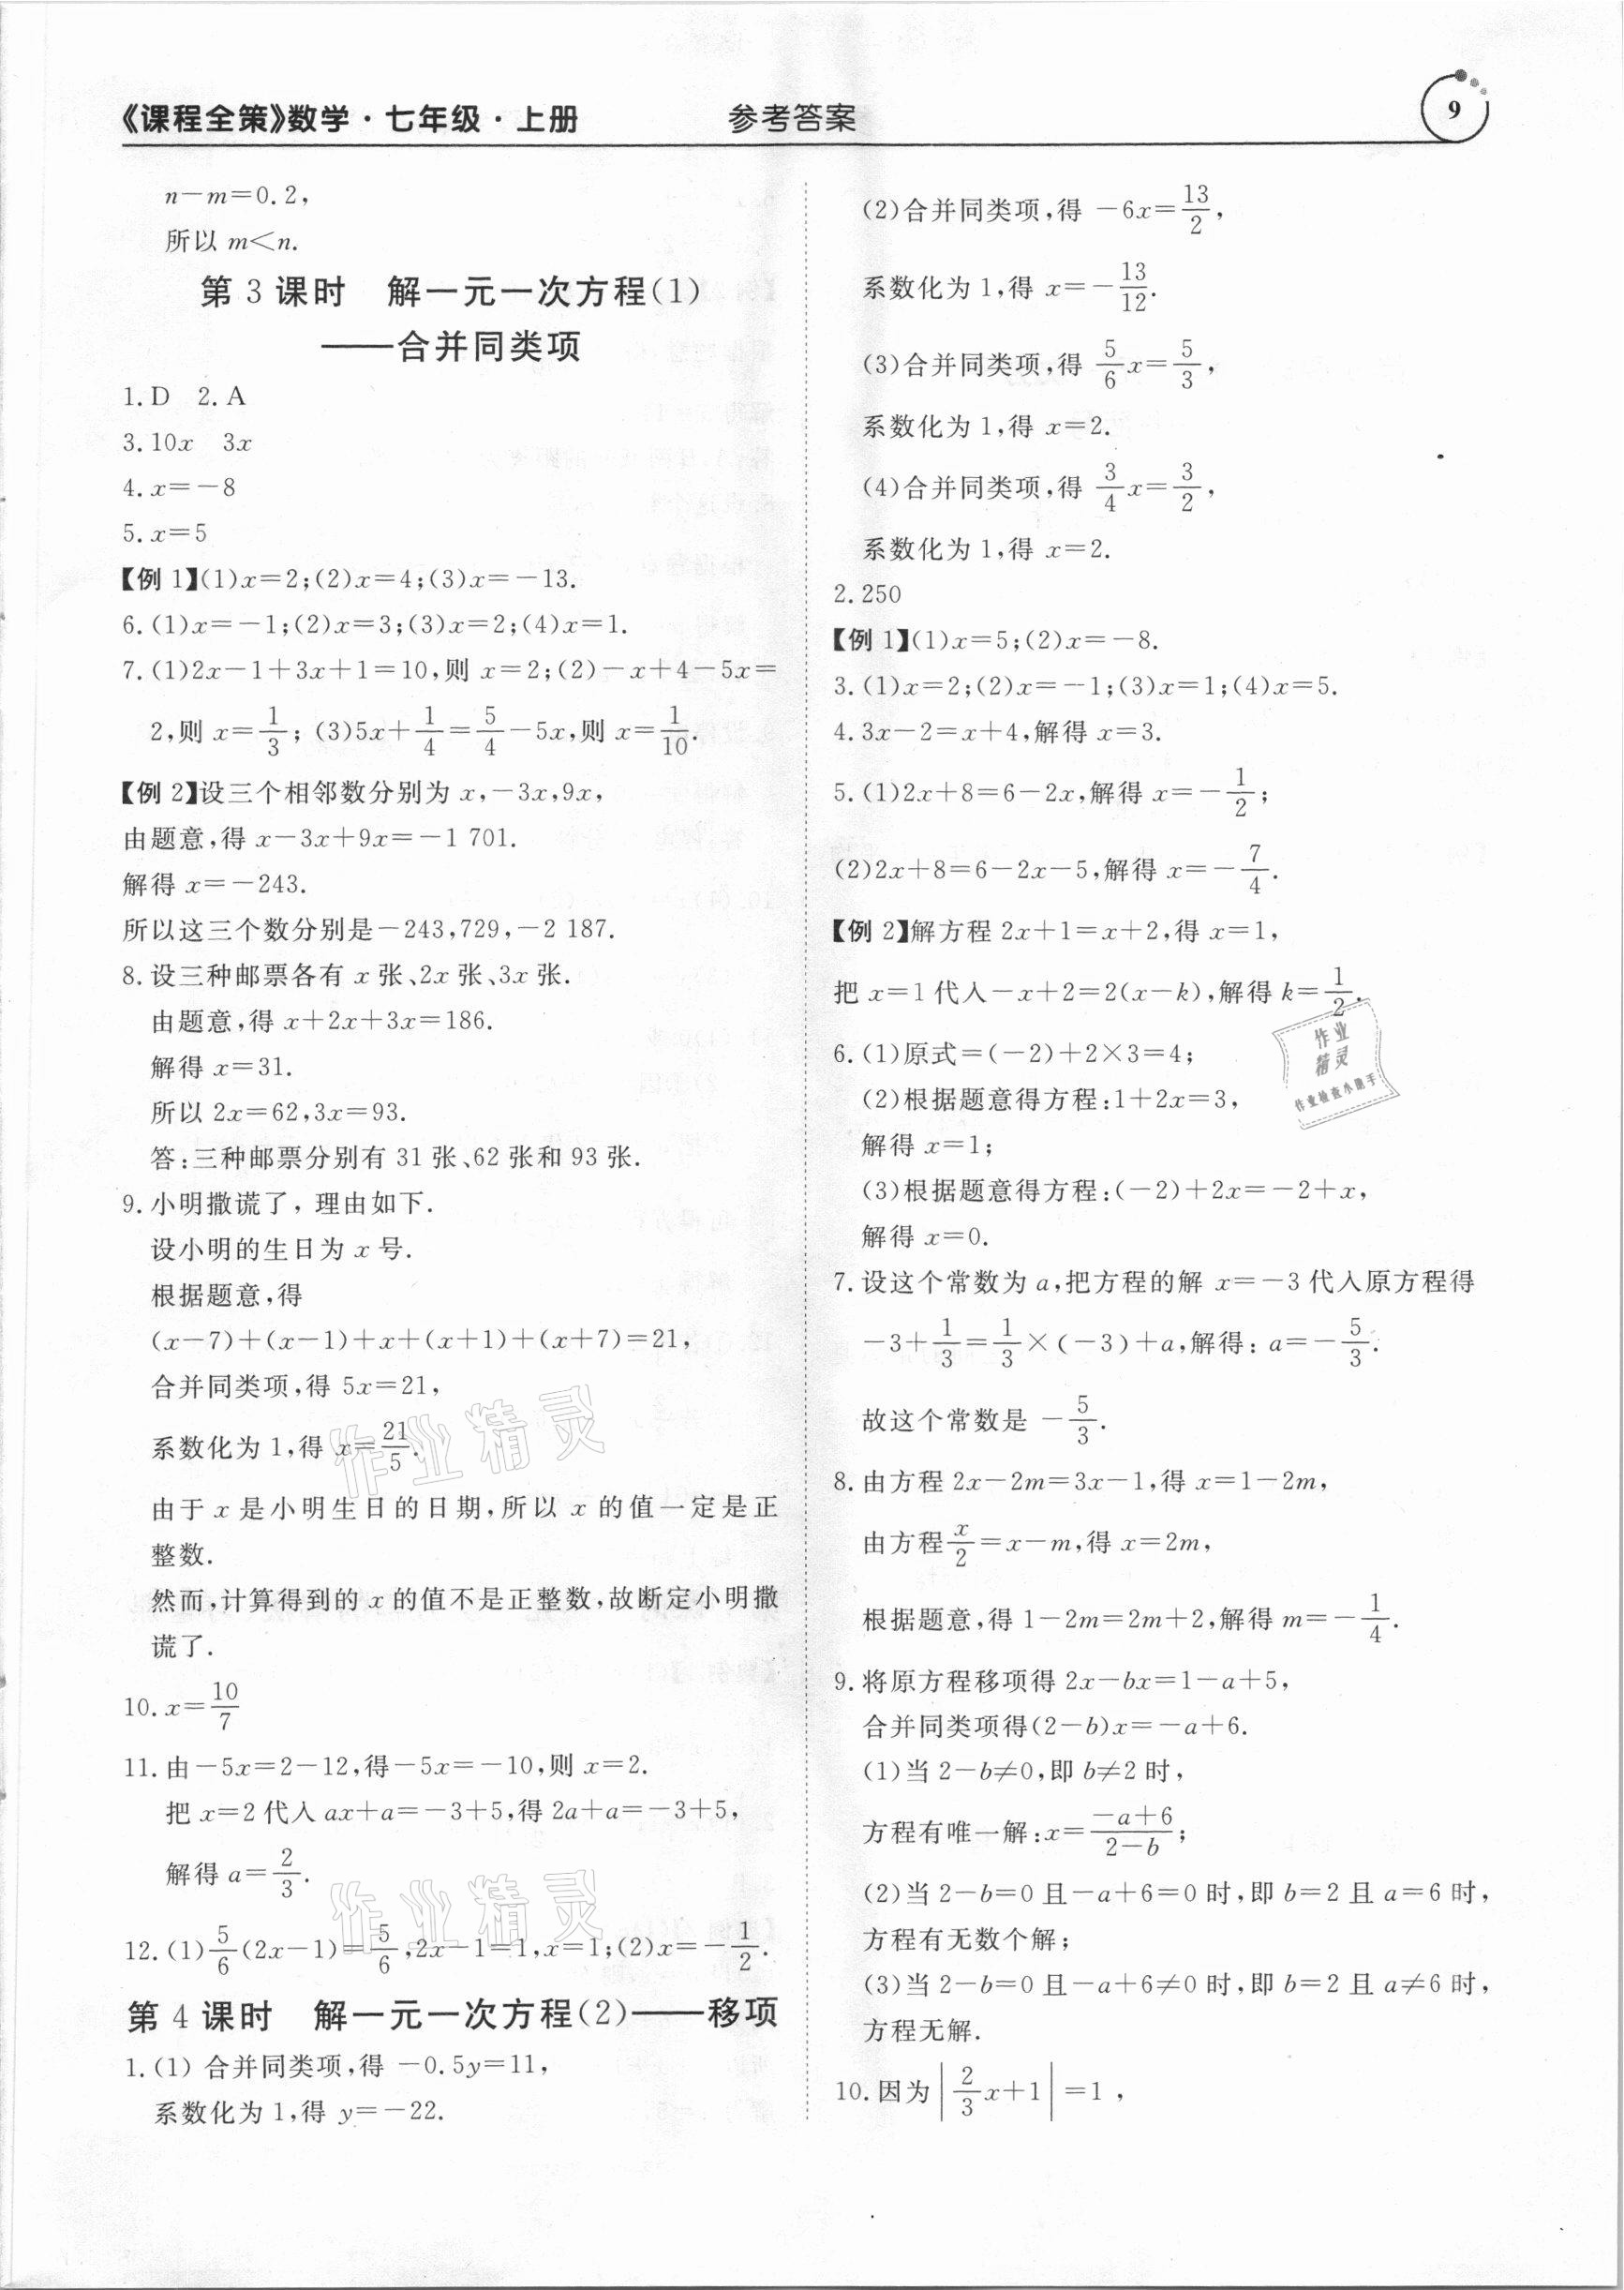 《课程全策》数学·七年级·上册
参考答案
9
n－m＝0.2，
所以 m＜n.
第 3 课时　解一元一次方程(1)
——合并同类项
1.D　2.A
3.10x　3x
4.x＝－8
5.x＝5
【例 1】(1)x＝2;(2)x＝4;(3)x＝－13.
6.(1)x＝－1;(2)x＝3;(3)x＝2;(4)x＝1.
7.(1)2x－1＋3x＋1＝10,则 x＝2;(2)－x＋4－5x＝
2,则 x＝1/3；(3)5x＋1/4＝5/4－5x,则 x＝1/10.
【例 2】设三个相邻数分别为 x,－3x,9x，
由题意,得 x－3x＋9x＝－1 701.
解得 x＝－243.
所以这三个数分别是－243,729,－2 187.
8.设三种邮票各有 x 张、2x 张、3x 张.
由题意,得 x＋2x＋3x＝186.
解得 x＝31.
所以 2x＝62,3x＝93.
答:三种邮票分别有 31 张、62 张和 93 张.
9.小明撒谎了，理由如下.
设小明的生日为 x 号.
根据题意,得
(x－7)＋(x－1)＋x＋(x＋1)＋(x＋7)＝21，
合并同类项,得 5x＝21，
系数化为 1,得 x＝21/5.
由于 x 是小明生日的日期,所以 x 的值一定是正
整数.
然而,计算得到的 x 的值不是正整数,故断定小明撒
谎了.
10.x＝10/7
11.由－5x＝2－12,得－5x＝－10,则 x＝2.
把 x＝2 代入 ax＋a＝－3＋5,得 2a＋a＝－3＋5，
解得 a＝2/3.
12.(1)5/6(2x－1)＝5/6,2x－1＝1,x＝1;(2)x＝－1/2.
第 4 课时　解一元一次方程(2)——移项
1.(1) 合并同类项,得 －0.5y＝11，
系数化为 1,得 y＝－22.
(2)合并同类项,得 －6x＝13/2，
系数化为 1,得 x＝－13/12.
(3)合并同类项,得 5/6x＝5/3，
系数化为 1,得 x＝2.
(4)合并同类项,得 3/4x＝3/2，
系数化为 1,得 x＝2.
2.250
【例 1】(1)x＝5;(2)x＝－8.
3.(1)x＝2;(2)x＝－1;(3)x＝1;(4)x＝5.
4.3x－2＝x＋4,解得 x＝3.
5.(1)2x＋8＝6－2x,解得 x＝－1/2；
(2)2x＋8＝6－2x－5,解得 x＝－7/4.
【例 2】解方程 2x＋1＝x＋2,得 x＝1，
把 x＝1 代入－x＋2＝2(x－k),解得 k＝1/2.
6.(1)原式＝(－2)＋2×3＝4；
(2)根据题意得方程:1＋2x＝3，
解得 x＝1；
(3)根据题意得方程:(－2)＋2x＝－2＋x，
解得 x＝0.
7.设这个常数为 a,把方程的解 x＝－3 代入原方程得
－3＋1/3＝1/3×(－3)＋a,解得：a＝－5/3.
故这个常数是 －5/3.
8.由方程 2x－2m＝3x－1,得 x＝1－2m，
由方程x/2＝x－m,得 x＝2m，
根据题意,得 1－2m＝2m＋2,解得 m＝－1/4.
9.将原方程移项得 2x－bx＝1－a＋5，
合并同类项得(2－b)x＝－a＋6.
(1)当 2－b≠0,即 b≠2 时，
方程有唯一解:x＝(－a＋6)/(2－b)；
(2)当 2－b＝0 且－a＋6＝0 时,即 b＝2 且 a＝6 时，
方程有无数个解；
(3)当 2－b＝0 且－a＋6≠0 时,即 b＝2 且 a≠6 时，
方程无解.
10.因为|2/3x＋1|＝1，
作业精灵
作业精灵
作业
精灵
作业检查小助手